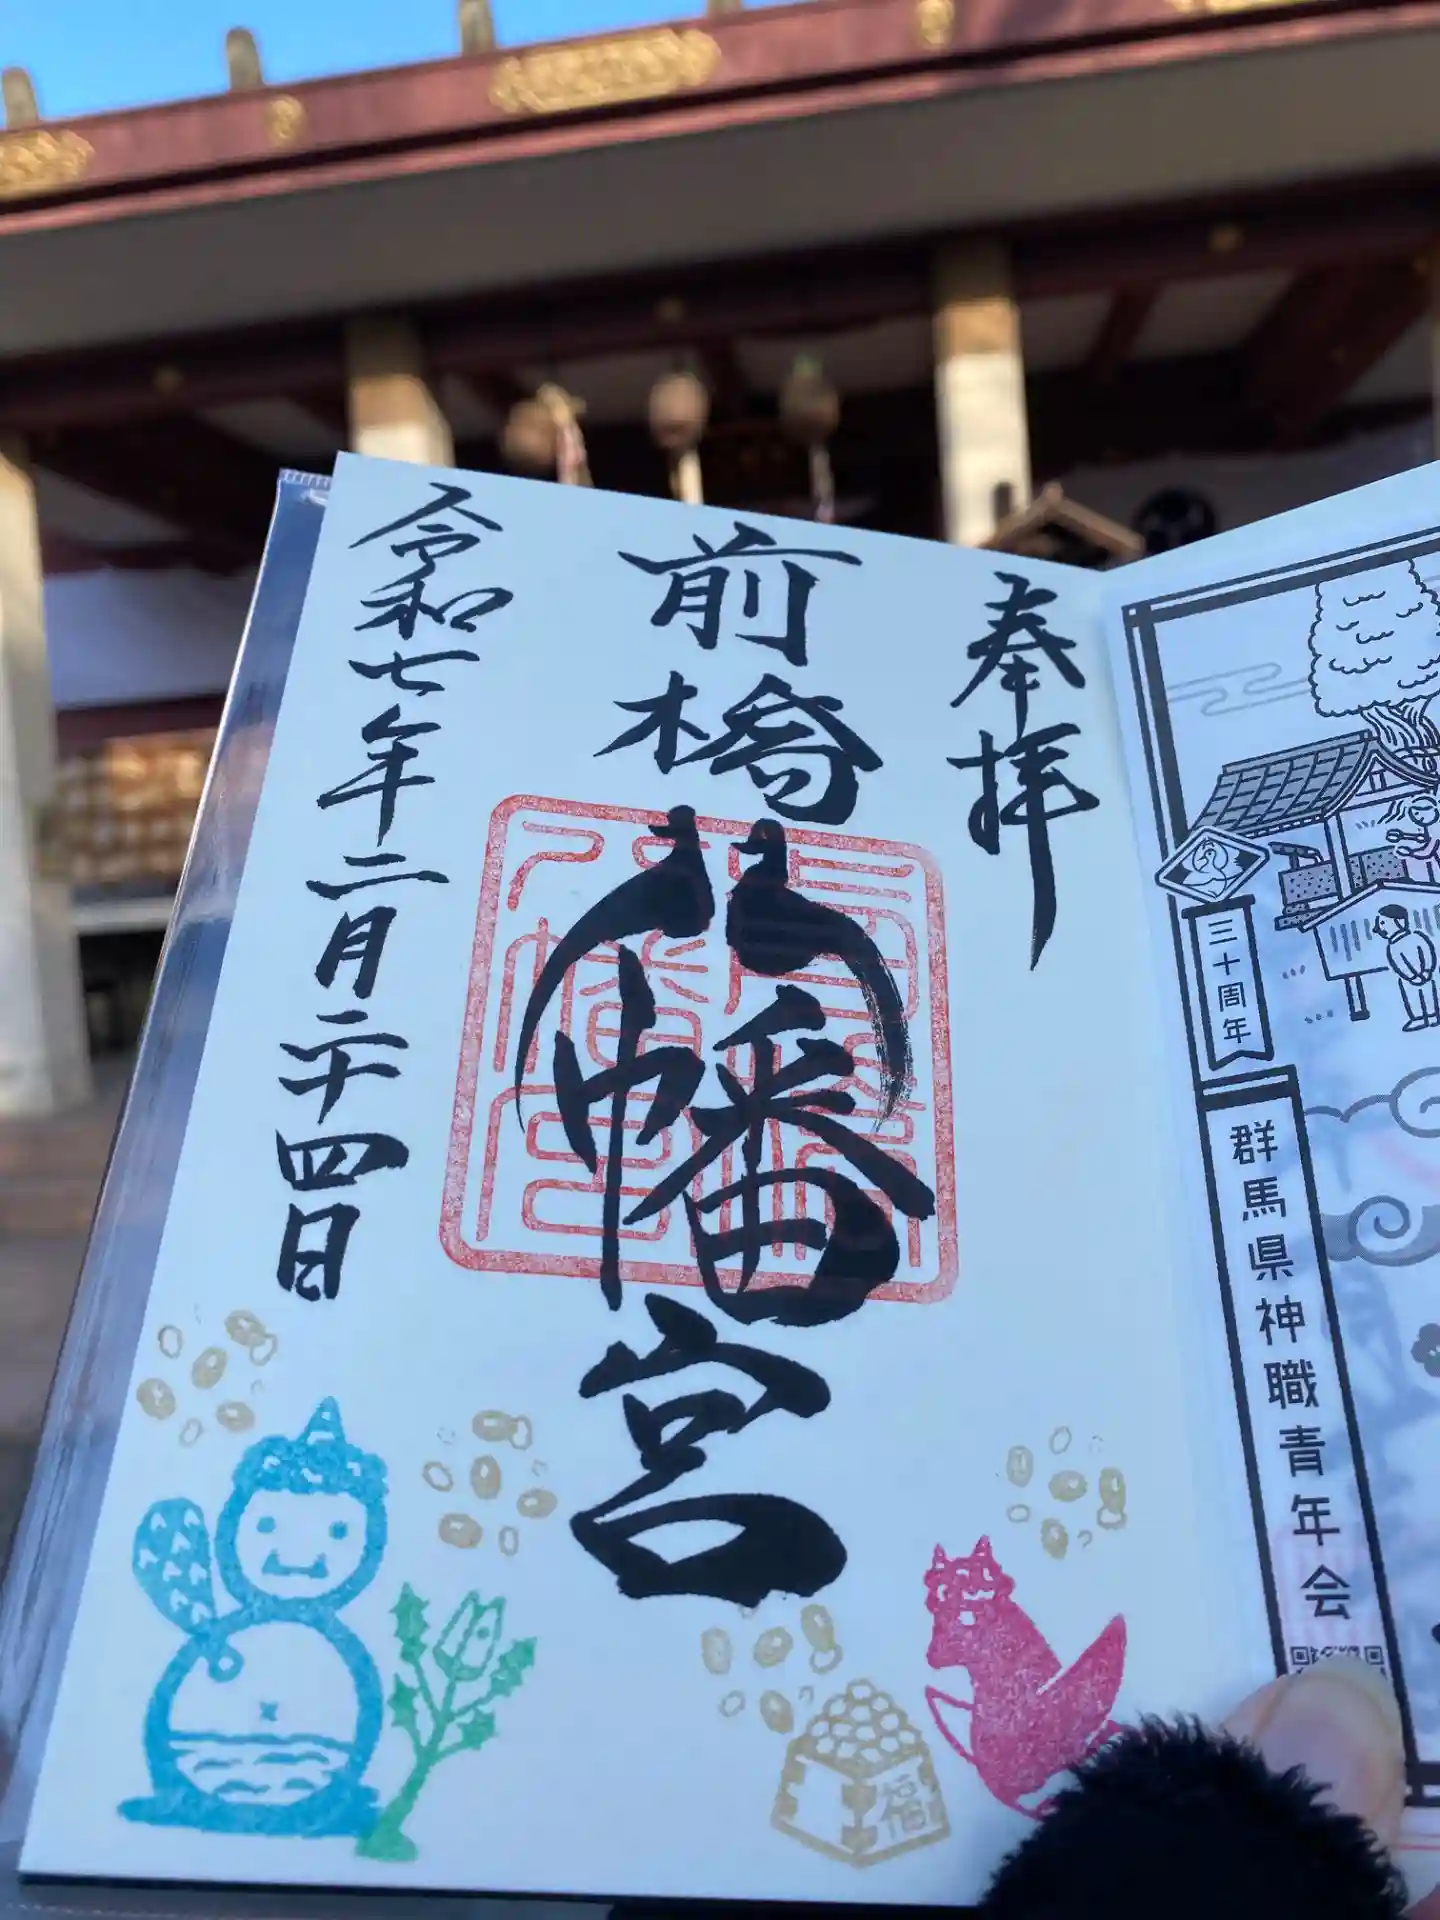 奉拝
前橋八幡宮
令和七年二月二十四日
福
三十周年
群馬県神職青年会